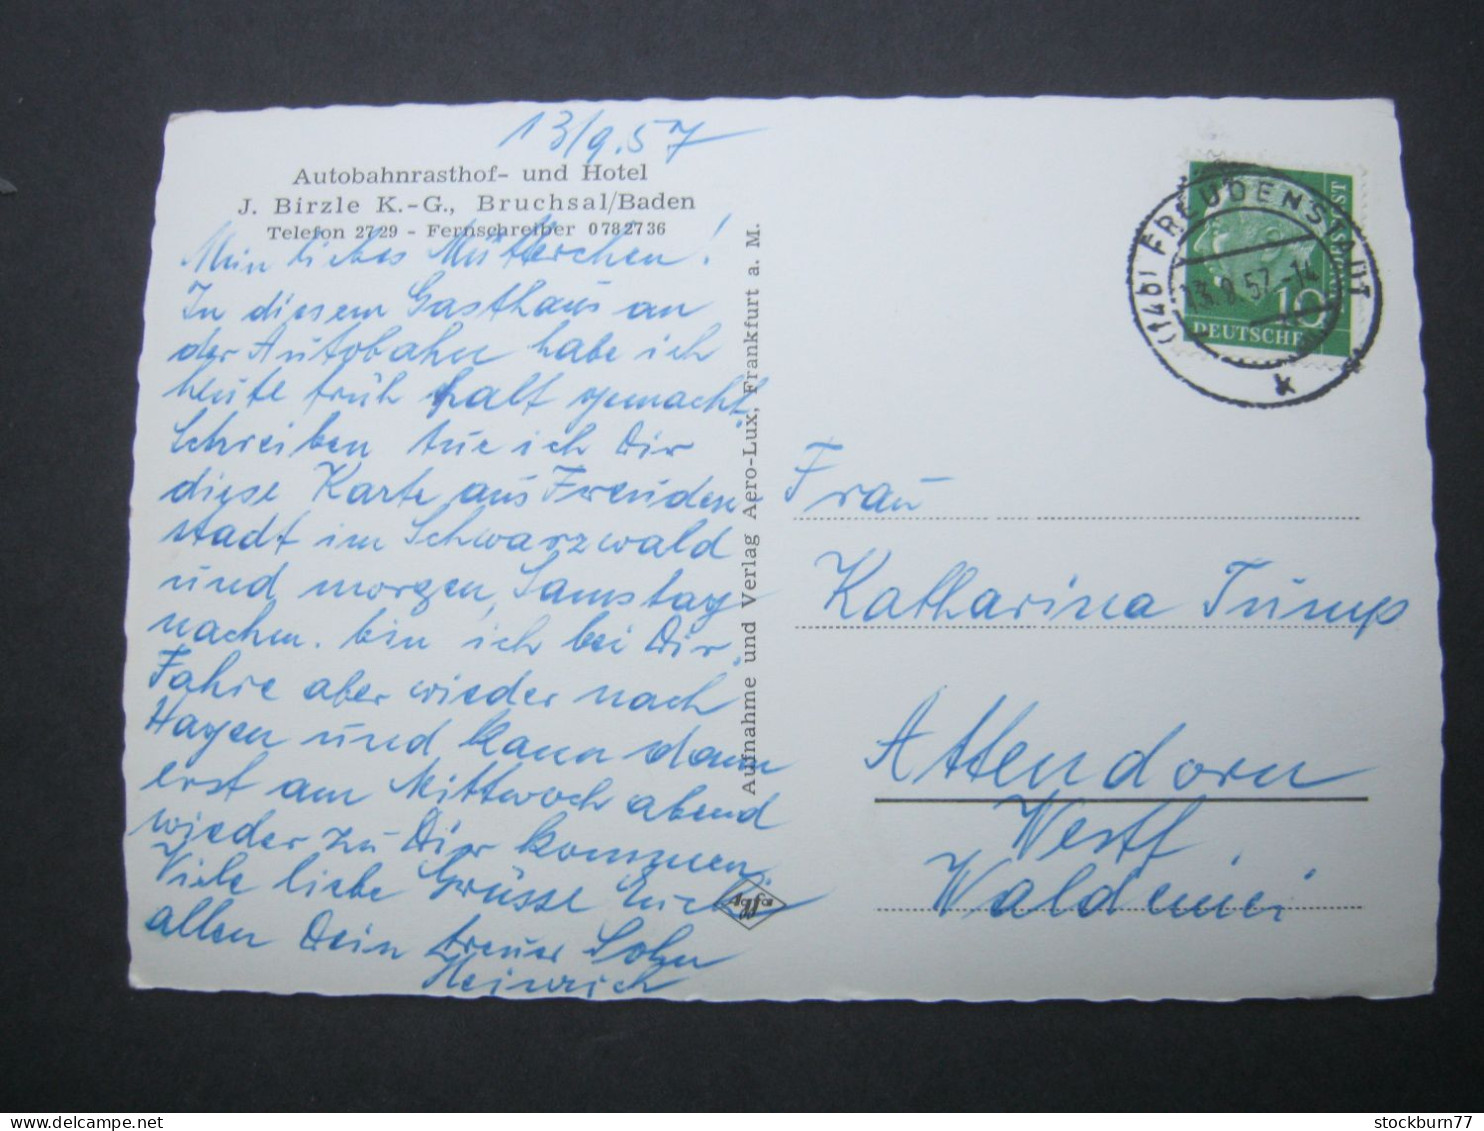 13/9.57
Autobahnrasthof- und Hotel
J. Birzle K.-G., Bruchsal/Baden
Telefon 2729 - Fernschreiber 0782736
Mein liebes Mütterchen!
In diesem Gasthaus an
der Autobahn habe ich
heute früh halt gemacht,
Schreiben tue ich Dir
diese Karte aus Freuden
stadt im Schwarzwald
und morgen, Samstag
nachm. bin ich bei Dir,
Fahre aber wieder nach
Hagen und kann dann
erst am Mittwoch abend
wieder zu Dir kommen.
Viele liebe Grüsse Euch
allen Dein treuer Sohn
Heinrich
Aufnahme und Verlag Aero-Lux, Frankfurt a. M.
Agfa
(14b) FREUDENSTADT
13.9.57.-14
k
POST
10
DEUTSCHE
Frau
Katharina Tump
Attendorn
Westf.
Waldemei
stockburn77